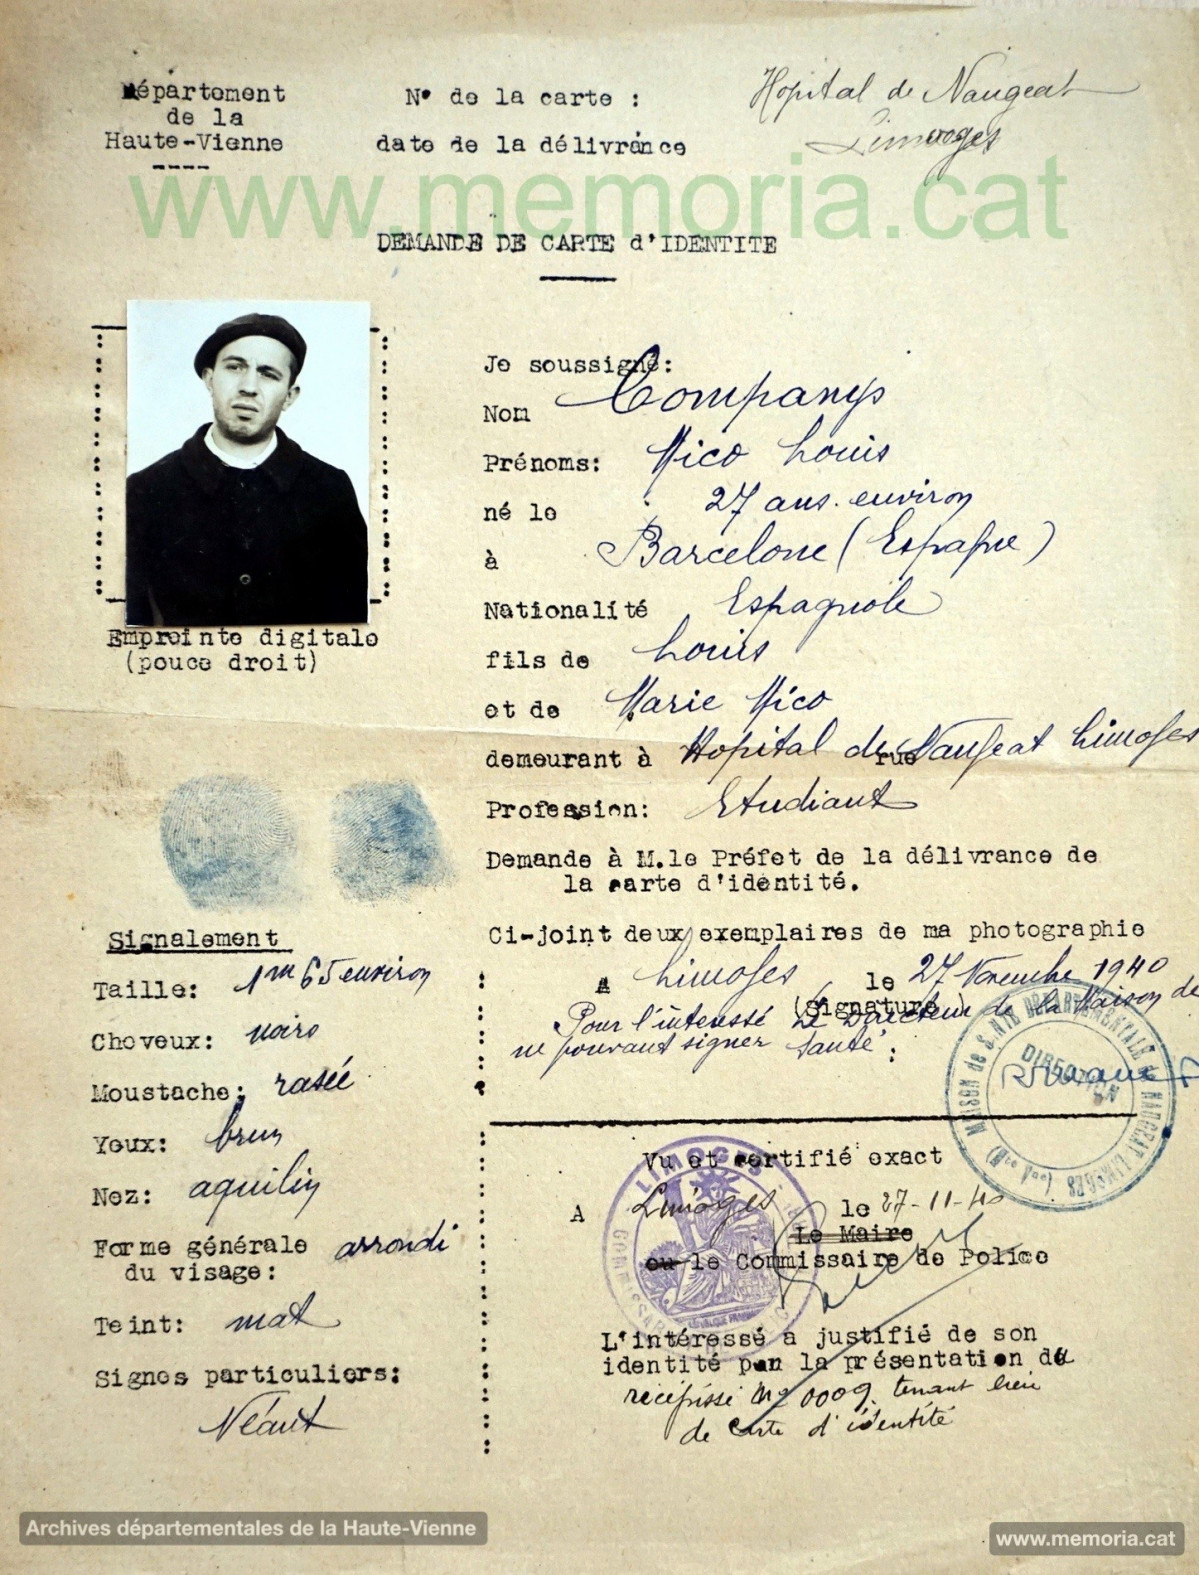 www.memoria.cat
Département
de la
Haute-Vienne
N° de la carte :
date de la délivrance
Hopital de Naugeat
Limoges
DEMANDE DE CARTE d'IDENTITE
Je soussigné:
Nom Companys
Prénoms: Mico Louis
né le 27 ans environ
à Barcelone (Espagne)
Nationalité Espagnole
fils de Louis
et de Marie Mico
demeurant à Hopital de rue Naugeat Limoges
Profession: Etudiant
Demande à M.le Préfet de la délivrance de
la carte d'identité.
Ci-joint deux exemplaires de ma photographie
A Limoges le 27 Novembre 1940
(Signature)
Pour l'intéressé Le Directeur de la Maison de
ne pouvant signer Santé :
MAISON de SANTÉ DÉPARTEMENTALE de NAUGEAT LIMOGES
DIRECTION
Empreinte digitale
(pouce droit)
Signalement
Taille: 1m 65 environ
Cheveux: noirs
Moustache: rasée
Yeux: brun
Nez: aquilin
Forme générale arrondi
du visage:
Teint: mat
Signes particuliers:
Néant
Vu et certifié exact
A Limoges le 27-11-40
Le Maire
ou le Commissaire de Police
LIMOGES
L'intéressé a justifié de son
identité par la présentation du
récépissé n° 0009 tenant lieu
de carte d'identité
Archives départementales de la Haute-Vienne
www.memoria.cat